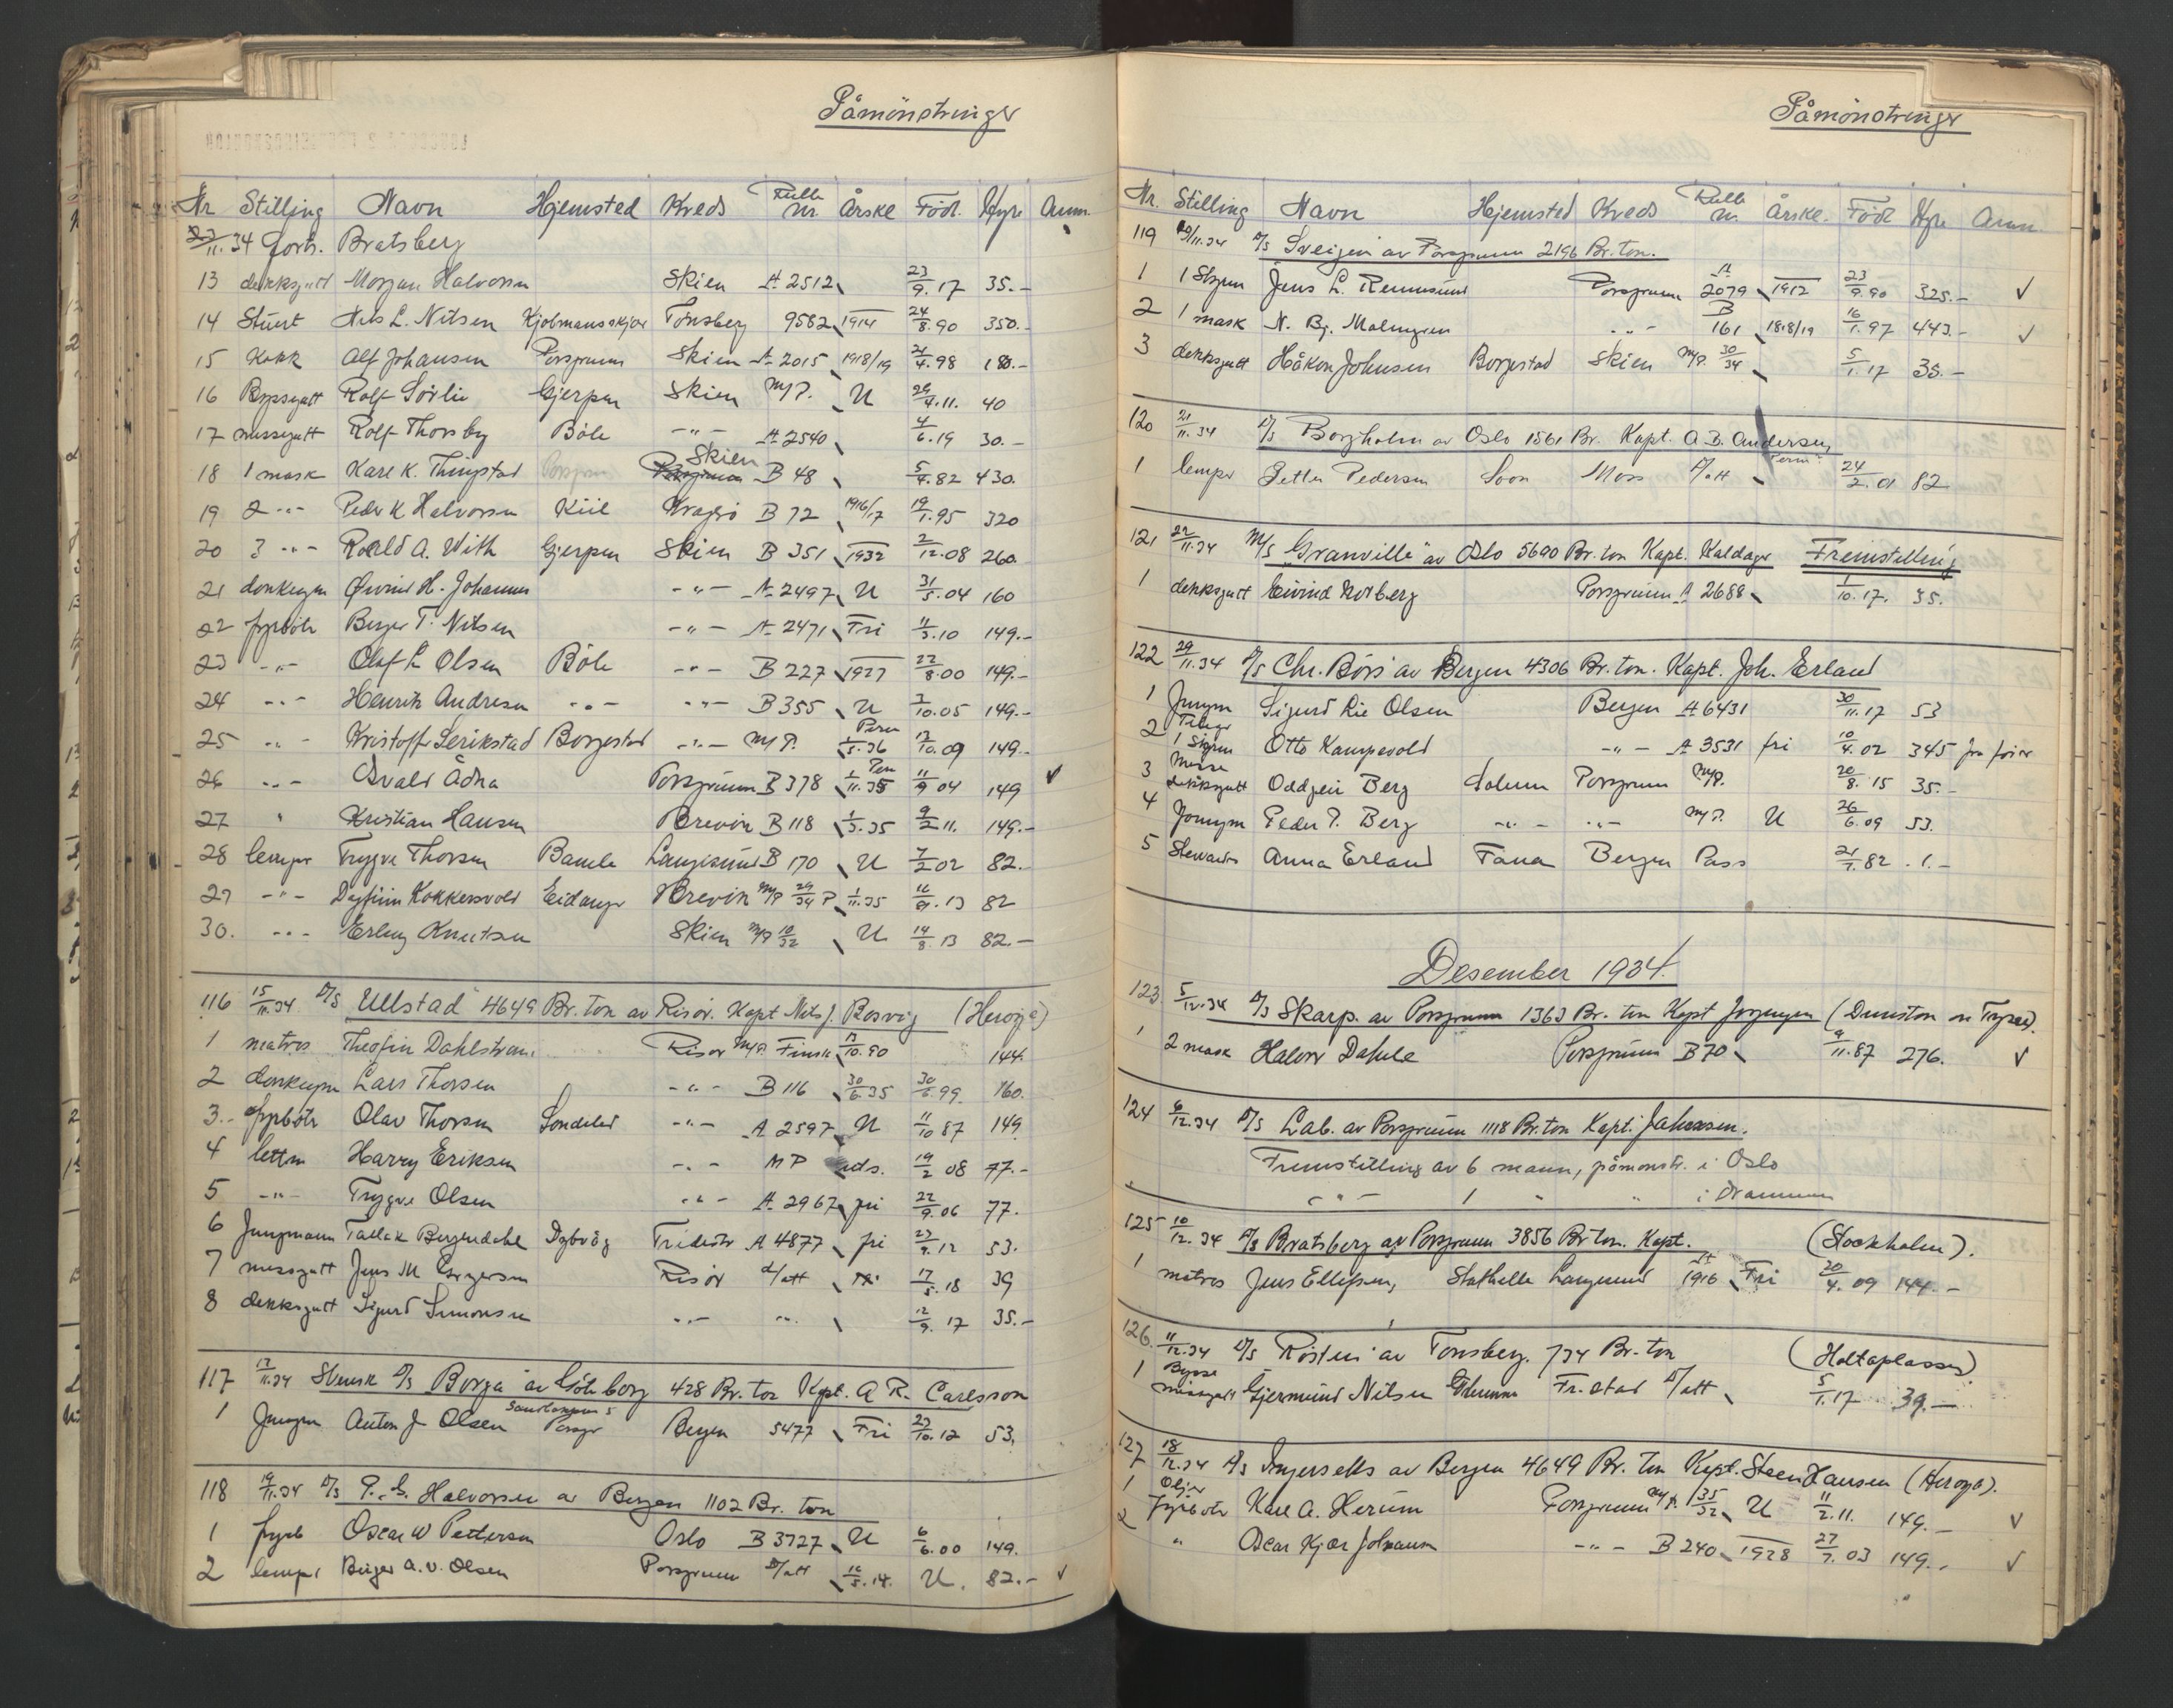 Påmönstringer
Nr Stilling Navn Hjemsted Kreds Rulle Nr. Årskl Född. Hyre Anm.
23/11.34 forts. Bratsberg
13 dekksgutt Morgan Halvorsen Skien A 2512 23/9.17 35.-
14 Stuert Nils L. Nilsen Kjøbmannskjær Tønsberg 9582 1914 24/8.90 350.-
15 Kokk Alf Johansen Porsgrunn Skien A 2015 1918/19 21/4.98 180.-
16 Byssegutt Rolf Sörlie Gjerpen Skien M/P. U 29/4.11. 40
17 messegutt Rolf Thorsby Böle -"- A 2540 4/6.19 30.-
18 1 mask Karl K. Thingstad Porsgrunn Skien B 48 5/4.82 430.
19 2 -"- Peder K Halvorsen Kiil Kragerö B 72 1916/17 19/1.95 320
20 3 -"- Roald A. With Gjerpen Skien B 351 1932 2/12.08 260.
21 donkeym Øivind H. Johannsen -"- A 2497 U 31/5.04 160
22 fyrböter Birger T. Nilsen -"- A 2471 Fri 11/3.10 149.-
23 -"- Olaf L Olsen Böle -"- B 227 1927 22/8.00 149.-
24 -"- Henrik Andresen -"- -"- B 355 U 3/10.05 149.-
25 -"- Kristoffer Lerikstad Borgestad -"- M/P. Perm 1/5.36 13/10.09 149.-
26 -"- Osvald Ådna Porsgrunn B 378 Perm 1/11.35 11/9 04 149 ✓
27 " Kristian Hansen Brevik B 118 1/3.35 9/2 11. 149.-
28 lemper Trygve Thorsen Bamle Langesund B 170 U 7/2 02 82.-
29 -"- Dagfinn Kokkersvold Eidanger Brevik M/P 29/34 P 1/11.35 13 82
30. -"- Erling Knutsen Skien M/P 10/32 U 14/8.13 82.-
116 15/11.34 D/S Ullstad 4649 Br. ton av Risör. Kapt Nils J. Bosvig (Heröya)
1 matros Theofin Dahlström Risör M/P. Finsk 10.90 144.
2 donkeym Lars Thorsen -"- B 116 30/6.35 30/6.99 160.
3.- fyrböter Olav Thorsen Söndeled -"- A 2597 U 11/10 87 149
4 lettm Harry Eriksen -"- MP uds. 19/2 08 77.-
5 -"- Trygve Olsen -"- A 2967 fri 22/9.06 77.
6 Jungmann Tallak Bergendahl Dybvåg Tvedestr A 4877 fri 23/9.12 53.
7 messgutt Jens M Gregersen Risör D/att 17/5.18 39
8 dekksgutt Sigurd Simonsen -"- -"- 12/9. 17 35.-
117 17/11.34 Svensk D/S Borga av Göteborg 428 Br. ton Kapt. A R. Carlsson
1 Jungm Anton J Olsen Porsgr Bergen 5477 Fri 23/10.12 53.
118 19/11.34 D/S P. G. Halvorsen av Bergen 1102 Br. ton
1 fyrb Oscar W Pettersen Oslo B 3727 U 6/6.00 149.
2 lemper Birger A. V. Olsen Porsgrunn D/att 16/5.14. U. 82.- ✓
Påmönstringer
Nr. Stilling Navn Hejemsted Kreds Rulle Nr. Årskl. Född Hyre Anm.
119 20/11.34 D/S Sveigen av Porsgrunn 2196 Br. ton.
1 1 Styrm Jens L. Remmsund Porsgrunn A 2079 1912 23/9.90 325.- ✓
2 1 mask N. Bj. Malmgren -"- B 161 1818/19 16/1.97 443.- ✓
3 dekksgutt Håkon Johnsen Borgestad Skien M/P. 30/34 5/1.17 35.-
120 21/11.34 D/S Borgholm av Oslo 1561 Br. Kapt. A B. Andersen
1 lemper Petter Pedersen Soon Moss D/att Perm 24/2.01 82
121 22/11.34 M/S "Granville" av Oslo 5690 Br. ton Kapt. Kaldager Fremstilling
1 dekksgutt Eivind Norberg Porsgrunn A 2688 1/10.17. 35.
122 29/11.34 D/S Chr. Börs av Bergen 4306 Br. ton. Kapt. Joh. Erland
1 Jungm Sigurd Lie Olsen Bergen A 6431 30/11.17 53
2 Telegr 1 Styrm Otto Kampevold -"- A 3531 fri 10/4.02 345 fra förer
3 Messe dekksgutt Oddgeir Berg Solum Porsgrunn M/P. 20/8.15 35.-
4 Jungm Peder P. Berg -"- -"- M/P. U 26/6.09 53.
5 Stewardes Anna Erland Fana Bergen Pass 21/7.82 . 1.-
Desember 1934.
123. 5/12.34 D/S Skarp. av Porsgrunn 1363 Br. ton Kapt Jorgensen (Dunston on Tyne).
1 2 mask Halvor Dahle Porsgrunn B 70 9/11.87 276. ✓
124 6/12.34 D/S Lab. av Porsgrunn 1118 Br. ton Kapt. Jahnsen.
Fremstilling av 6 mann, påmönstr. i Oslo
-"- 1 " " i Drammen
125 10/12.34 D/S Bratsberg av Porsgrunn 3856 Br ton. Kapt. (Stockholm).
1 matros Jens Ellefsen, Stathelle Langesund A 1916 Fri 20/4.09 144.-
126. 11/12.34 D/S Rösten av Tønsberg. 734 Br. ton (Holtaplassen)
1 Bysse messegutt Gjermund Nilsen Fr. stad D/att 5/1.17 39.-
127 18/12.34 D/S Ingerseks av Bergen 4649 Br. ton Kapt. Steen Hansen (Heröya).
1 Oljer Fyrböter Karl A. Herum Porsgrunn M/P. 35/32 U 11/2.11. 149.- ✓
2 " Oscar Kjær Johansen -"- B 240 1928 27/7.03 149.- ✓